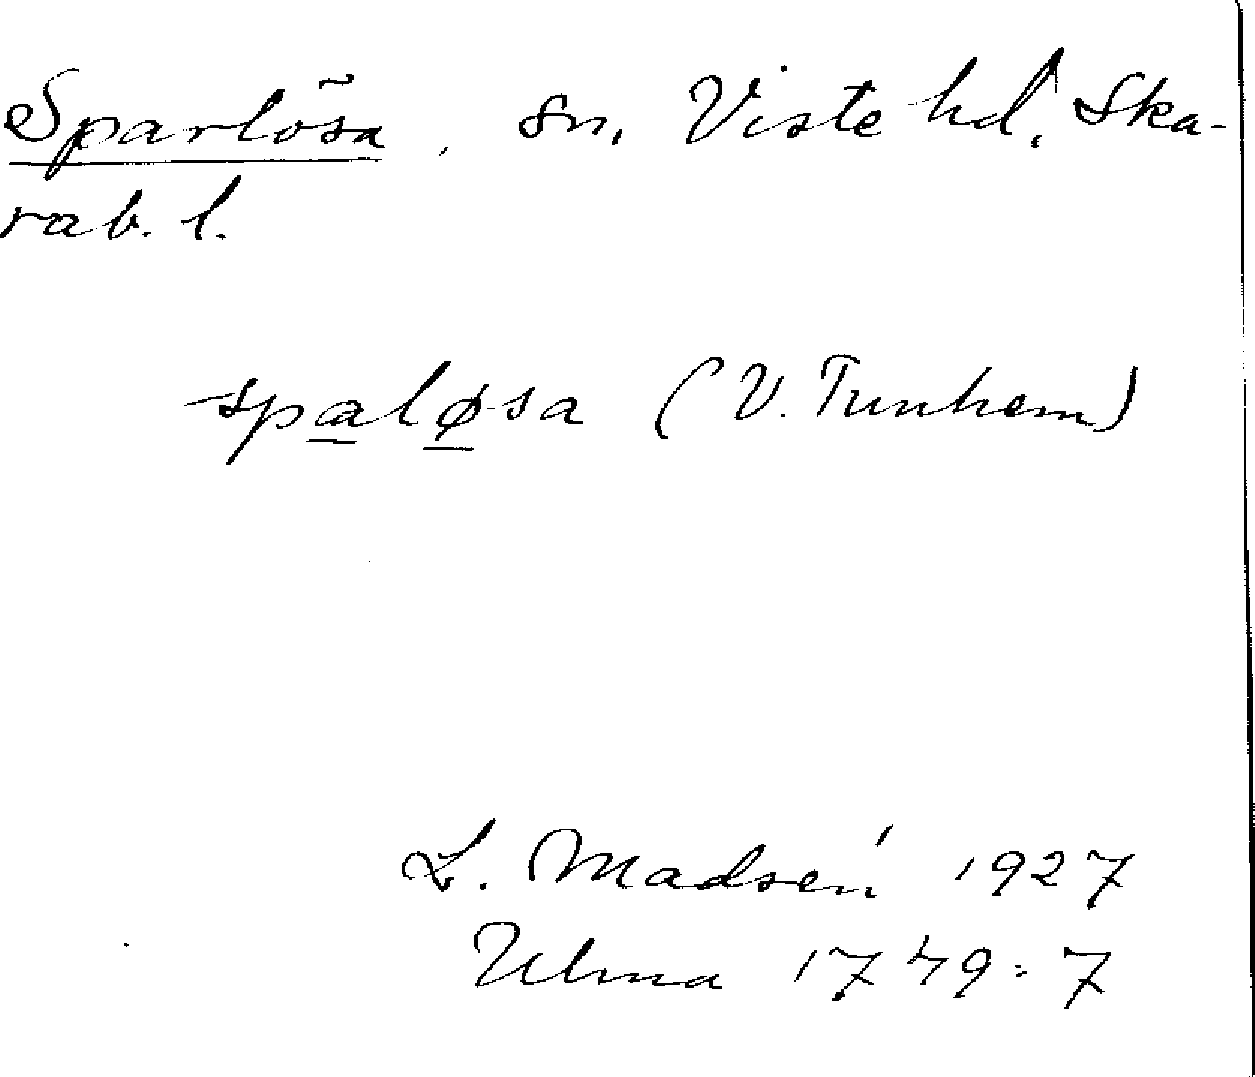 Sparlösa, sn, Viste hd, Ska-
rab. l.
spaløsa (V. Tunhem)
L. Madsén 1927
Ulma 1749:7